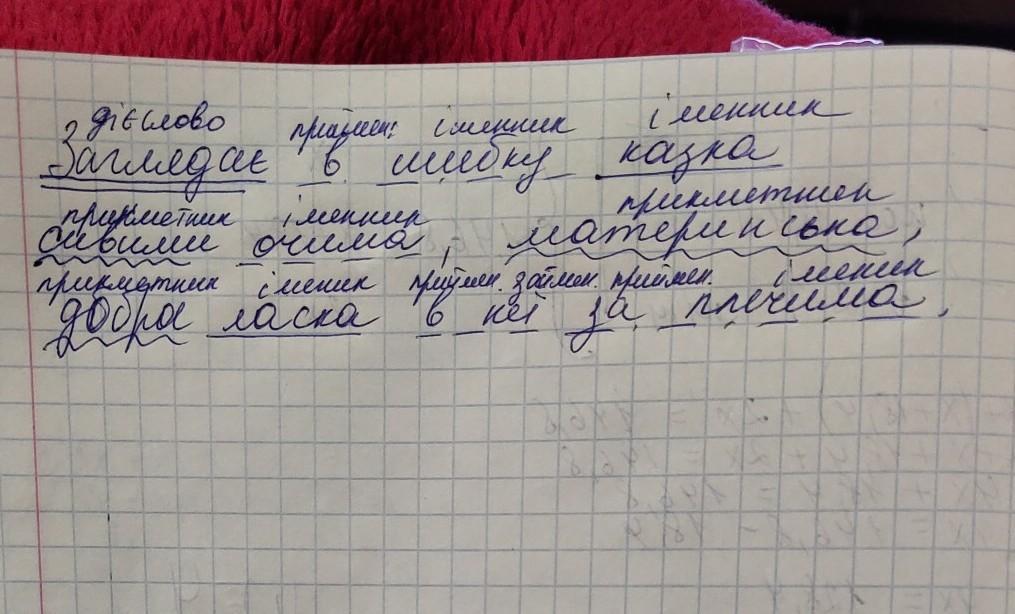 дієслово приймен: іменник іменник
Заглядає в шибку казка
прикметник іменник прикметнек
сивими очима, материнська,
прикметник іменик приймен. займен. приймен. іменик
добра ласка в неї за плечима,